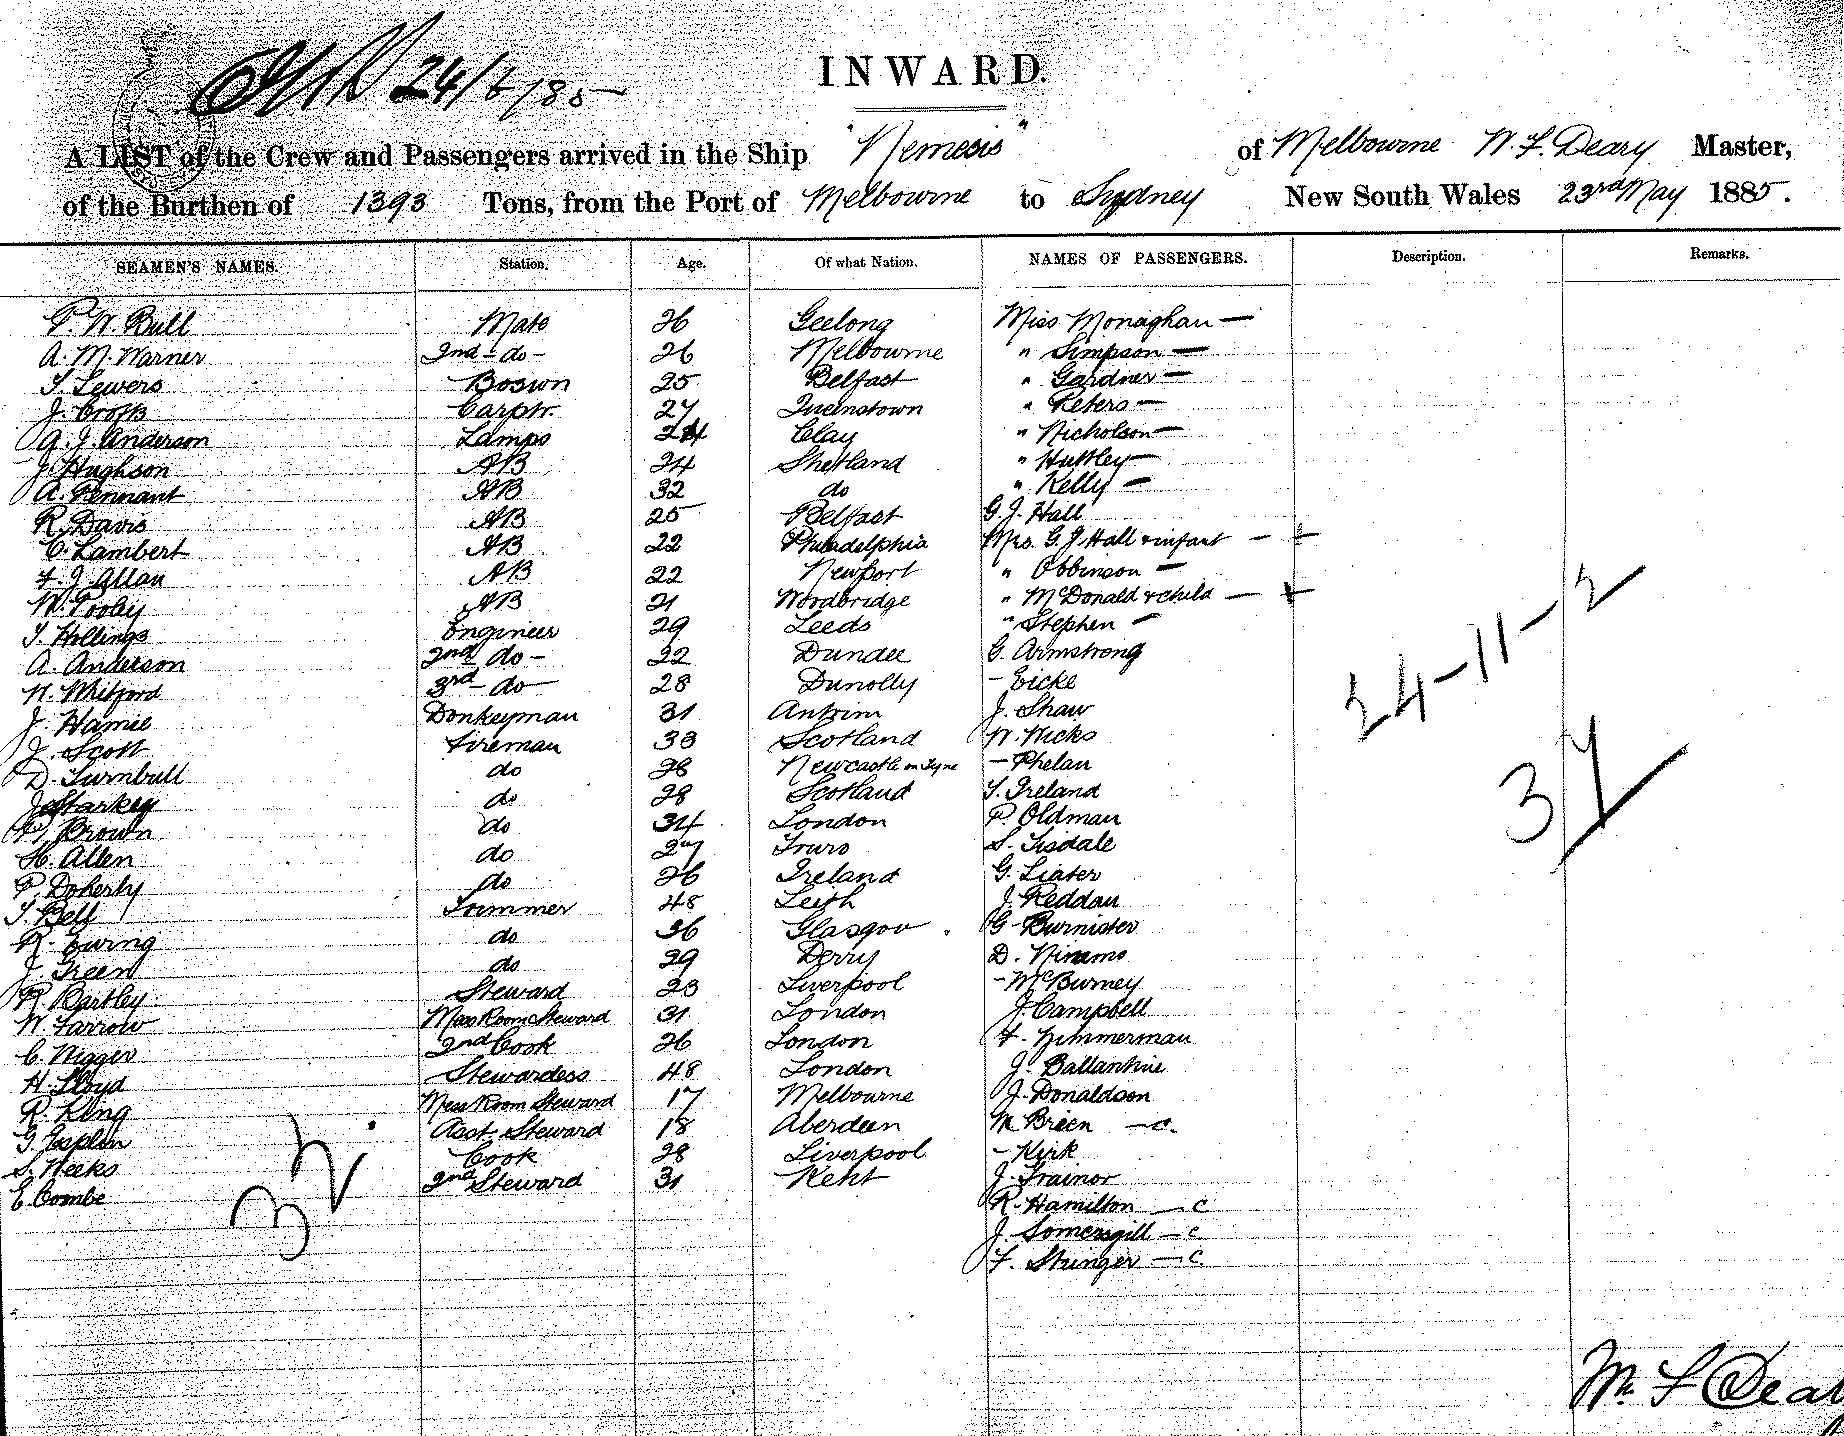 24/6/85
INWARD.
A LIST of the Crew and Passengers arrived in the Ship "Nemesis" of Melbourne W. F. Deary Master,
of the Burthen of 1393 Tons, from the Port of Melbourne to Sydney New South Wales 23rd May 1885.
SEAMEN'S NAMES. Station. Age. Of what Nation. NAMES OF PASSENGERS. Description. Remarks.
P. W. Bull Mate 26 Geelong Miss Monaghan —
A. M. Warner 2nd - do - 26 Melbourne " Simpson —
T. Sewers Boswn 25 Belfast " Gardner —
J. Crofts Carptr. 27 Queenstown " Peters —
A. J. Anderson Lamps 24 Clay " Nicholson —
J. Hughson AB 24 Shetland " Huttley —
A. Tennant AB 32 do " Kelly —
R. Davis AB 25 Belfast G. J. Hall
C. Lambert AB 22 Philadelphia Mrs. G. J. Hall & infant — +
F. J. Allan AB 22 Newport " Obbinson —
W. Pooley AB 21 Woodbridge " McDonald & child — +
T. Hollings Engineer 29 Leeds " Stephen —
A. Anderson 2nd do - 22 Dundee G. Armstrong
N. Whitford 3rd - do - 28 Dunolly - Eicke
J. Hamil Donkeyman 31 Antrim J. Shaw
J. Scott Fireman 33 Scotland W. Hicks
D. Turnbull do 28 Newcastle on Tyne - Phelan
J. Starkey do 28 Scotland T. Ireland
Brown do 34 London P. Oldman
H. Allen do 27 Truro S. Tisdale
P. Doherty do 26 Ireland G. Liater
T. Bell Trimmer 48 Leith J. Reddan
R. Ewing do 36 Glasgow G. Burnister
J. Green do 29 Derry D. Nimmo
R. Bartley Steward 23 Liverpool - McBurney
W. Farrow Mess Room Steward 31 London J. Campbell
C. 2nd Cook 26 London F. Zimmerman
H. Lloyd Stewardess 48 London J. Ballantine
R. King Mess Room Steward 17 Melbourne J. Donaldson
G. Joplin Asst. Steward 18 Aberdeen M. Breen — c.
S. Weeks Cook 28 Liverpool - Kirk
E. Combe 2nd Steward 31 Kent J. Trainor
R. Hamilton — c
J. Somersgill — c
F. Stringer — c.
34-11-2
37
32